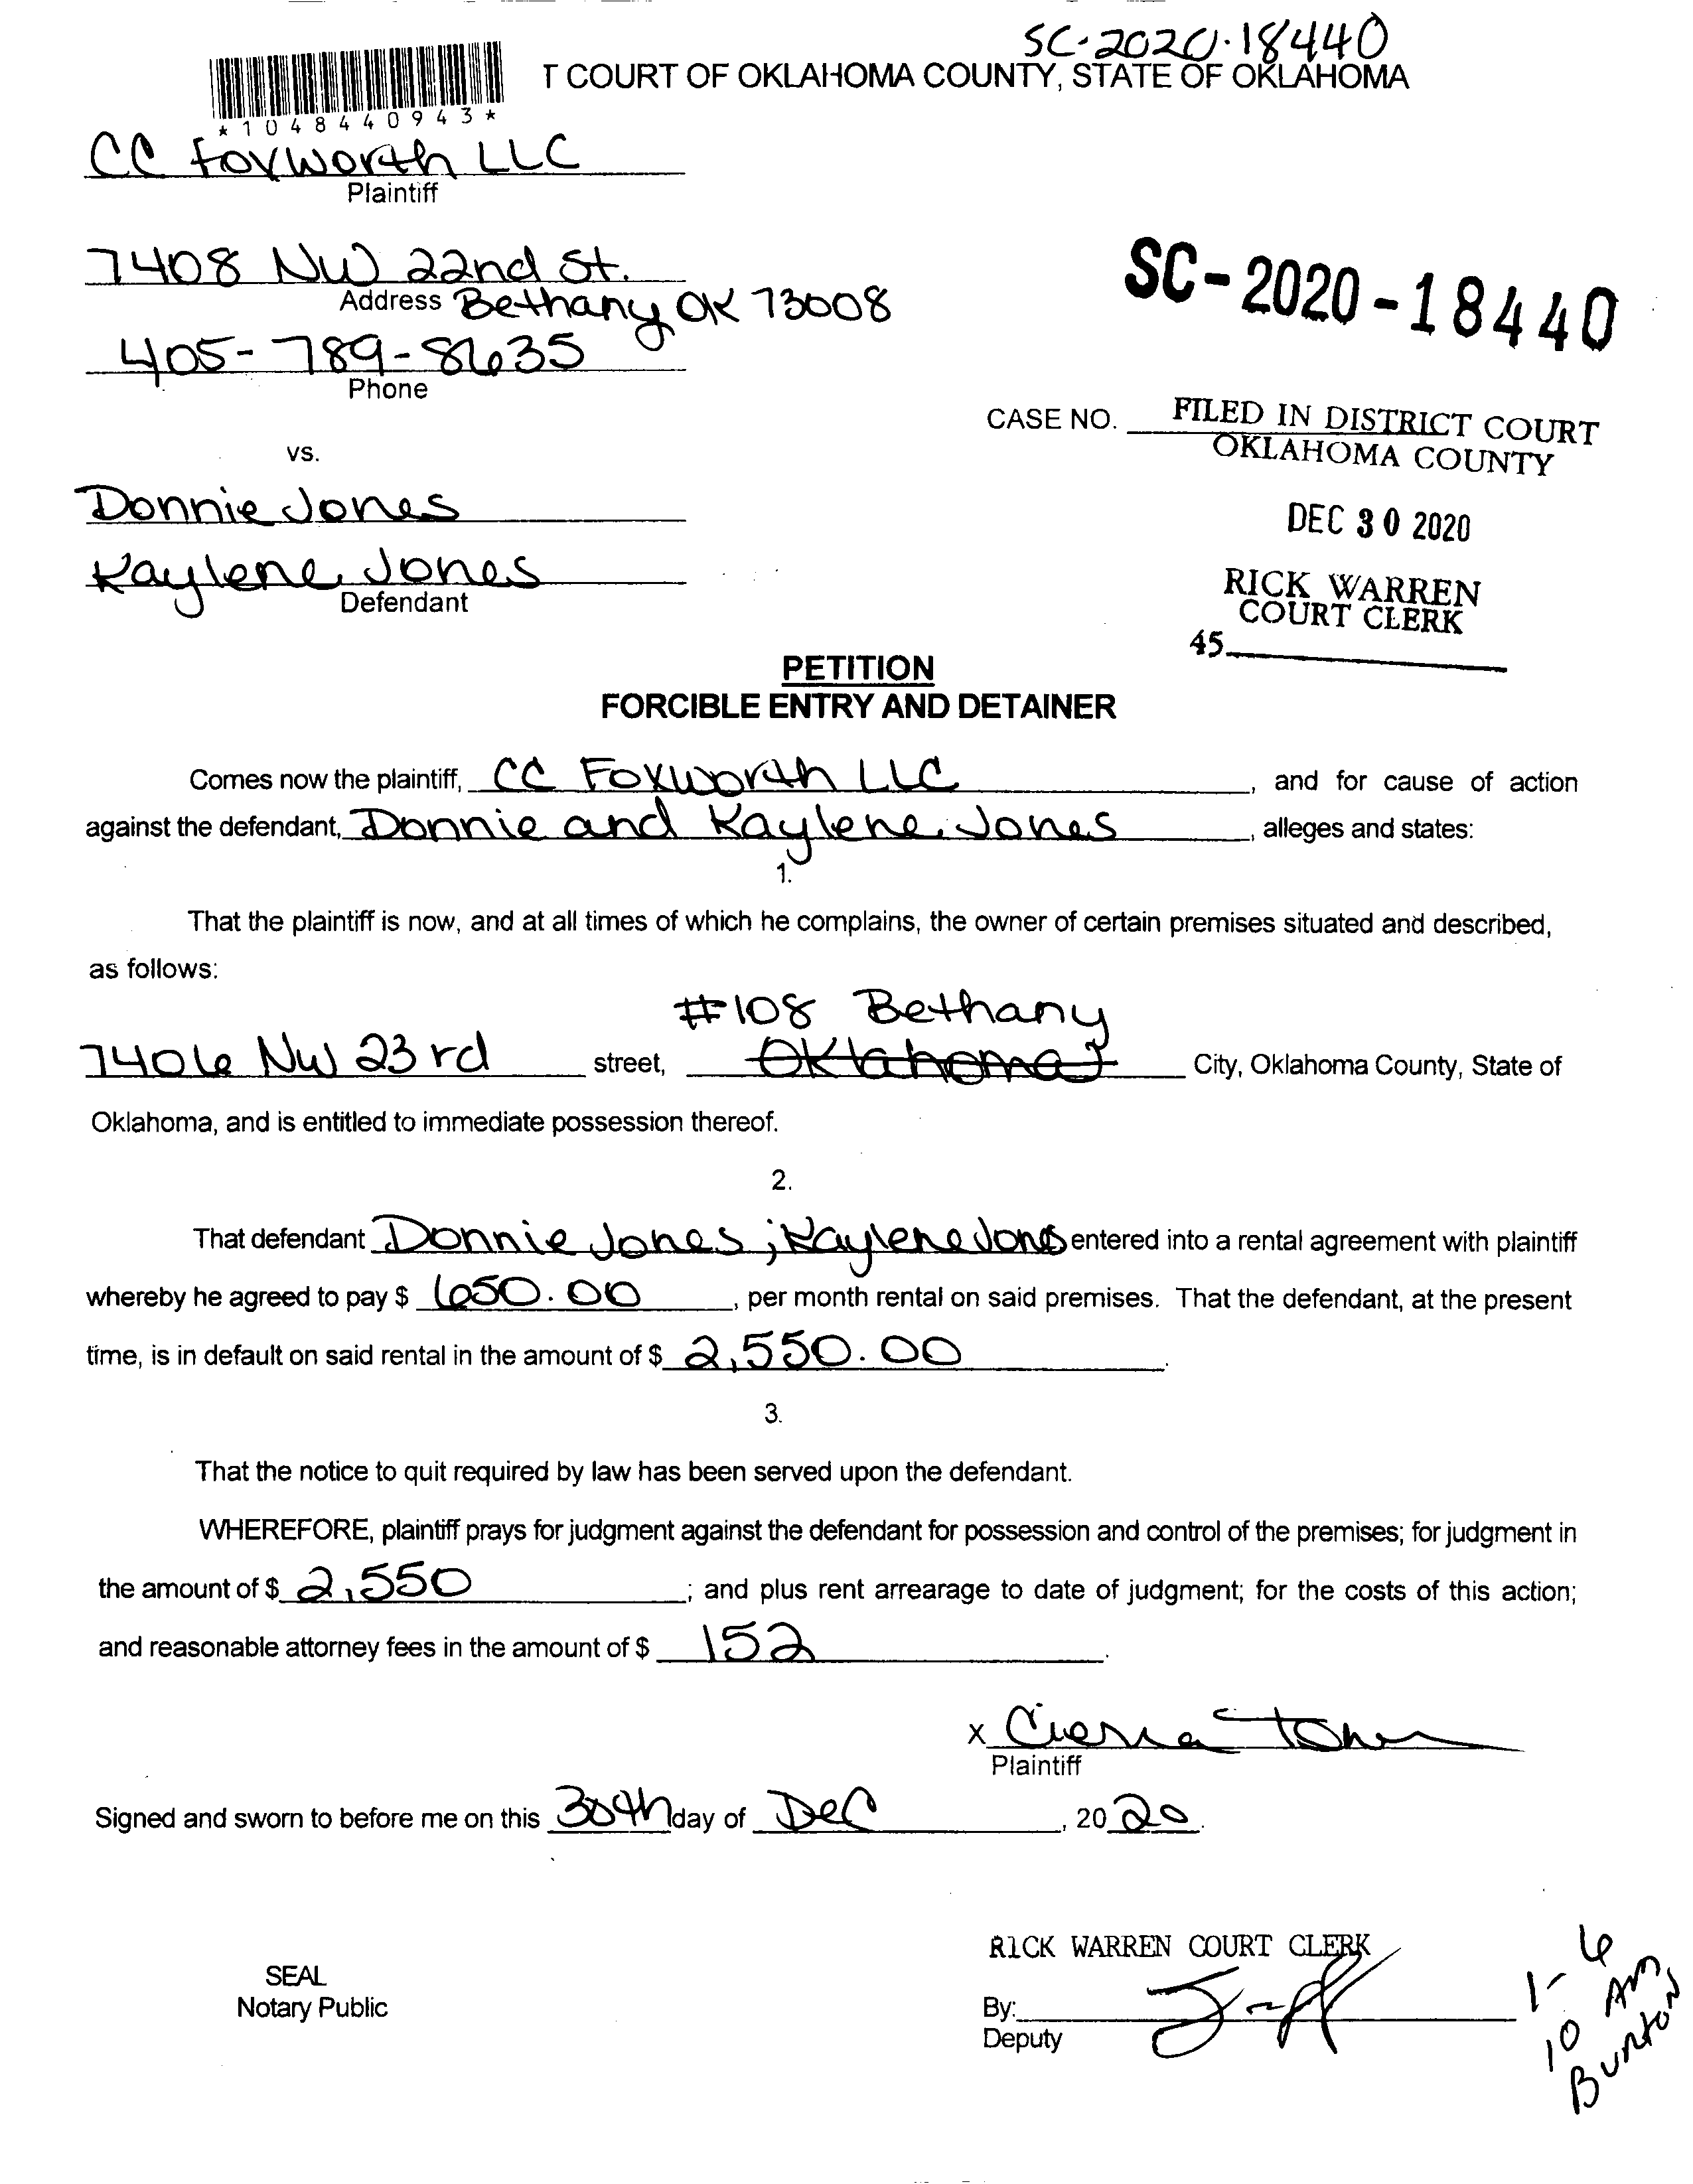 SC-2020-18440
T COURT OF OKLAHOMA COUNTY, STATE OF OKLAHOMA
*1048440943*
CC Foxworth LLC
Plaintiff
7408 NW 22nd St.
Address Bethany OK 73008
SC-2020-18440
405-789-8635
Phone
CASE NO. FILED IN DISTRICT COURT
OKLAHOMA COUNTY
vs.
Donnie Jones
DEC 30 2020
Kaylene Jones
Defendant
RICK WARREN
COURT CLERK
45
PETITION
FORCIBLE ENTRY AND DETAINER
Comes now the plaintiff, CC Foxworth LLC, and for cause of action
against the defendant, Donnie and Kaylene Jones, alleges and states:
1.
That the plaintiff is now, and at all times of which he complains, the owner of certain premises situated and described,
as follows:
#108 Bethany
7406 NW 23rd street, Oklahoma City, Oklahoma County, State of
Oklahoma, and is entitled to immediate possession thereof.
2.
That defendant Donnie Jones ; Kaylene Jones entered into a rental agreement with plaintiff
whereby he agreed to pay $ 650.00, per month rental on said premises. That the defendant, at the present
time, is in default on said rental in the amount of $ 2,550.00.
3.
That the notice to quit required by law has been served upon the defendant.
WHEREFORE, plaintiff prays for judgment against the defendant for possession and control of the premises; for judgment in
the amount of $ 2,550; and plus rent arrearage to date of judgment; for the costs of this action;
and reasonable attorney fees in the amount of $ 152.
X Cierra
Plaintiff
Signed and sworn to before me on this 30th day of Dec, 2020.
RICK WARREN COURT CLERK
SEAL
Notary Public
By:
Deputy
1-6
10 AM
Burton